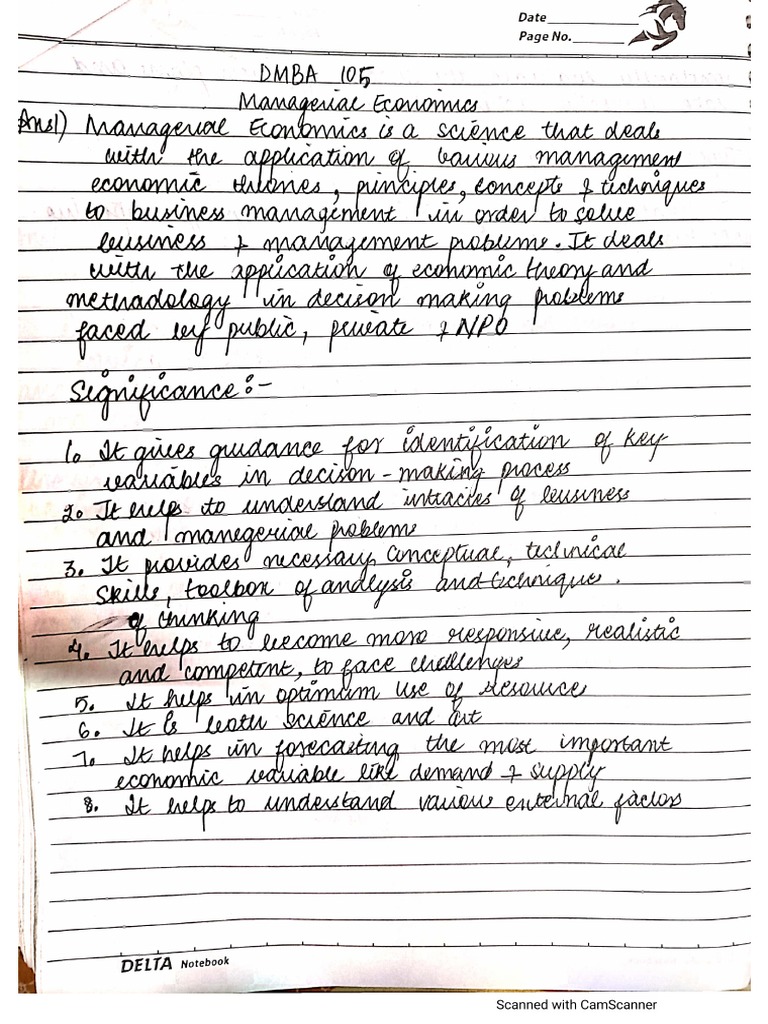 Date
Page No.
DMBA 105
Managerial Economics
Ans1) Managerial Economics is a science that deals
with the application of various management
economic theories, principles, concepts & techniques
to business management in order to solve
business & management problems. It deals
with the application of economic theory and
methodology in decision making problems
faced by public, private & NPO
Significance:-
1. It gives guidance for identification of key
variables in decison-making process
2. It helps to understand intracies of business
and manegerial problems
3. It provides necessary conceptual, technical
skills, toolbox of analysis and techniques.
of thinking
4. It helps to become more responsive, realistic
and competent, to face challenges
5. It helps in optimum use of resource
6. It is both science and art
7. It helps in forecasting the most important
economic variable like demand & supply
8. It helps to understand various external factors
DELTA Notebook
Scanned with CamScanner